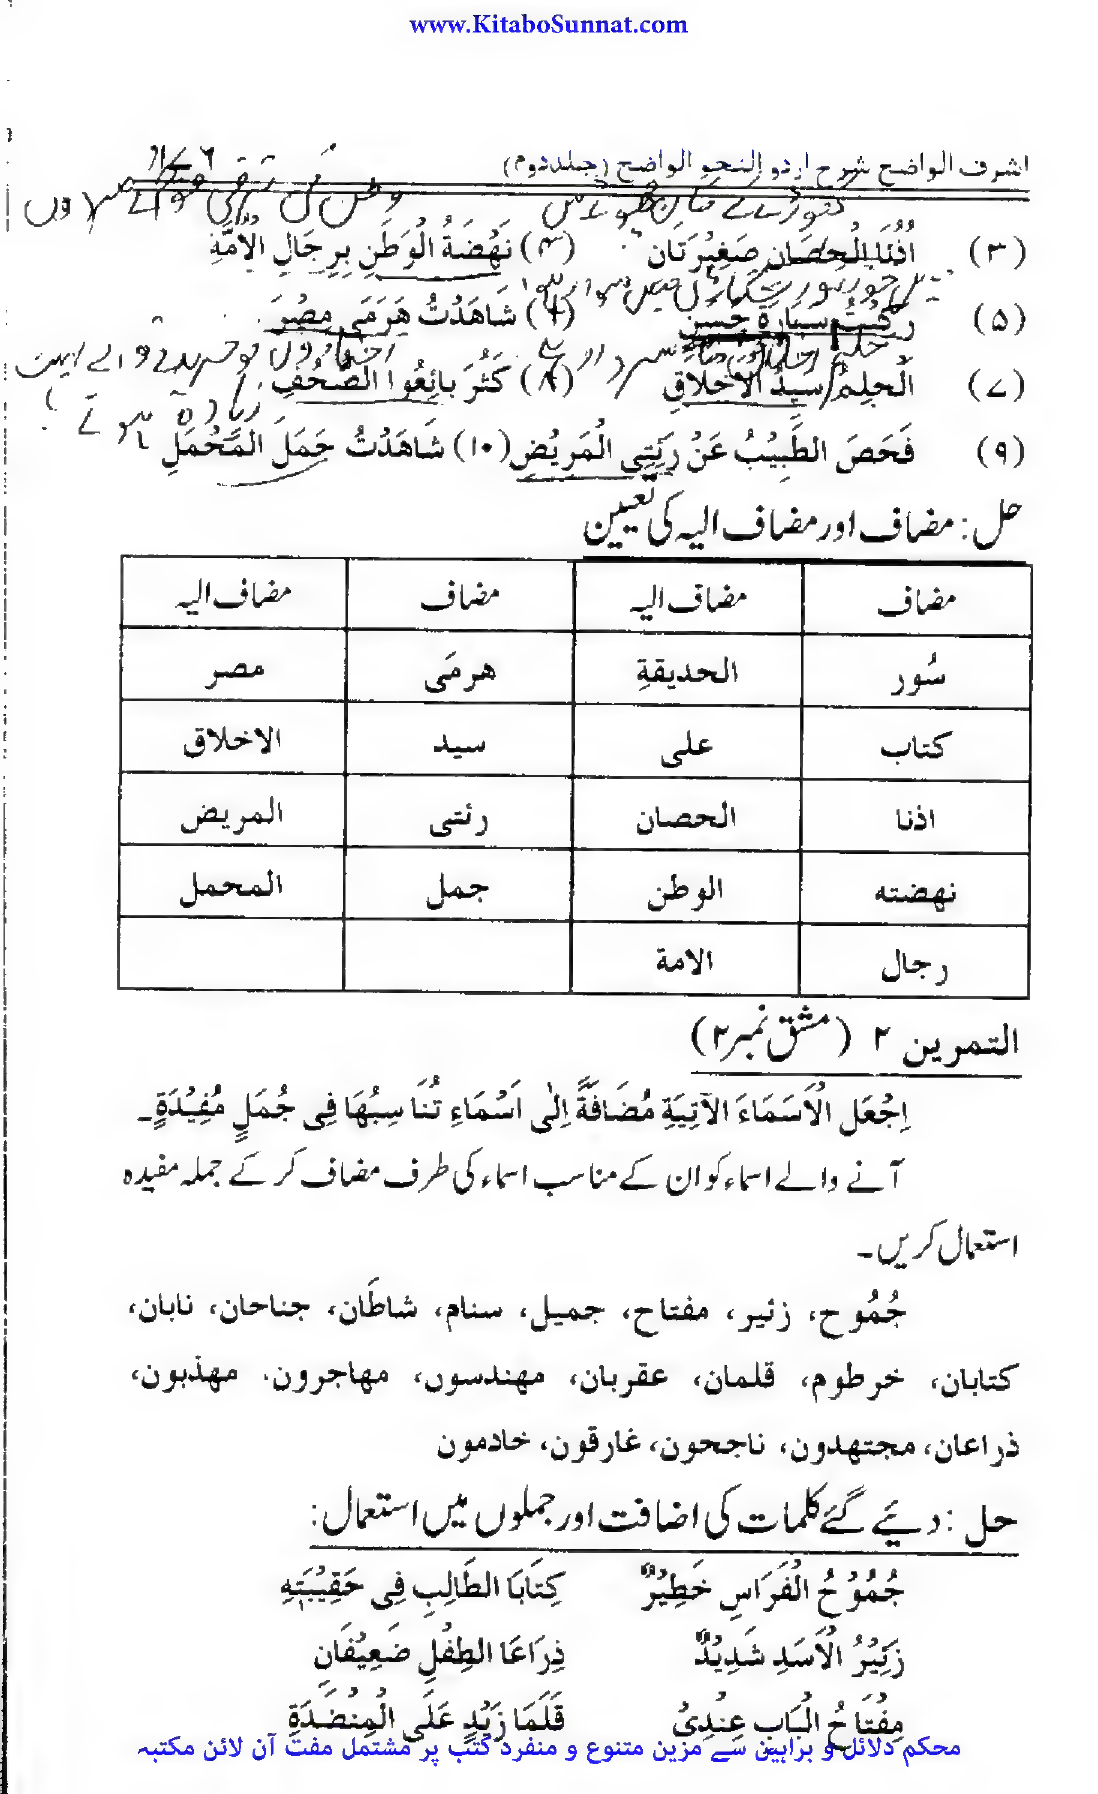 www.KitaboSunnat.com
اشرف الواضح شرح اردو النحو الواضح (جلد دوم)
(۳) اُذُنَا الْحِصَانِ صَغِيْرَتَانِ (۴) نَهْضَةُ الْوَطَنِ بِرِجَالِ الْاُمَّةِ
(۵) رَكِبْتُ سَيَارَةَ حَسَنٍ (۶) شَاهَدْتُ هَرَمَىِ مِصْرَ
(۷) اَلْحِلِمُ سَيِّدُ الْاَخْلَاقِ (۸) كَثُرَ بَائِعُوا الصُّحُفِ
(۹) فَحَصَ الطَّبِيْبُ عَنْ رِئَتِى الْمَرِيْضِ (۱۰) شَاهَدْتُ جَمَلَ الْمَحْمَلِ
حل: مضاف اور مضاف الیہ کی تعیین
مضاف مضاف الیہ مضاف مضاف الیہ
سُور الحديقةِ هرمَى مصر
كتاب على سيد الاخلاق
اذنا الحصان رئتى المريض
نهضته الوطن جمل المحمل
رجال الامة
التمرين ۲ (مشق نمبر ۲)
اِجْعَلِ الْاَسْمَاءَ الْآتِيَةِ مُضَافَةً اِلٰى اَسْمَاءِ تُنَاسِبُهَا فِى جُمَلٍ مُفِيْدَةٍ۔
آنے والے اسماء کو ان کے مناسب اسماء کی طرف مضاف کر کے جملہ مفیدہ
استعمال کریں۔
جُمُوح، زئير، مفتاح، جميل، سنام، شاطَان، جناحان، نابان،
كتابان، خرطوم، قلمان، عقربان، مهندسون، مهاجرون، مهذبون،
ذراعان، مجتهدون، ناجحون، غارقون، خادمون
حل: دیئے گئے کلمات کی اضافت اور جملوں میں استعمال:
جُمُوْحُ الْفَرَاسِ خَطِيْرٌ كِتَابَا الطَّالِبِ فِى حَقِيْبَتِهِ
زَئِيْرُ الْاَسَدِ شَدِيْدٌ ذِرَاعَا الطِفْلِ ضَعِيْفَانِ
مِفْتَاحُ الْبَابِ عِنْدِىْ قَلَمَا زَيْدٍ عَلَى الْمِنْضَدَةِ
محکم دلائل و براہین سے مزین متنوع و منفرد کتب پر مشتمل مفت آن لائن مکتبہ